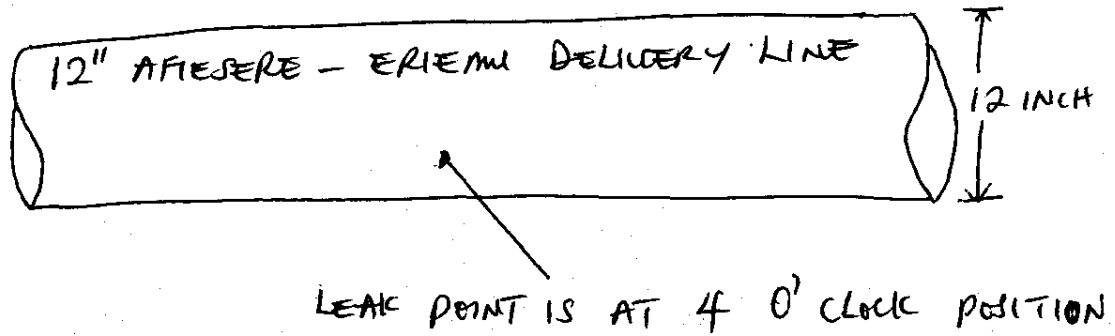 12" AFIESERE - ERIEMU DELIVERY LINE
12 INCH
LEAK POINT IS AT 4 O'CLOCK POSITION